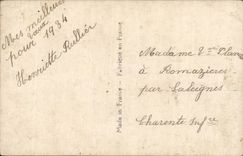 Mes meilleurs
vœux
pour 1934
Henriette Rullier
Made in France - Fabriqué en France
Madame Vve
à Romazières
par Saleignes
Charente Infre